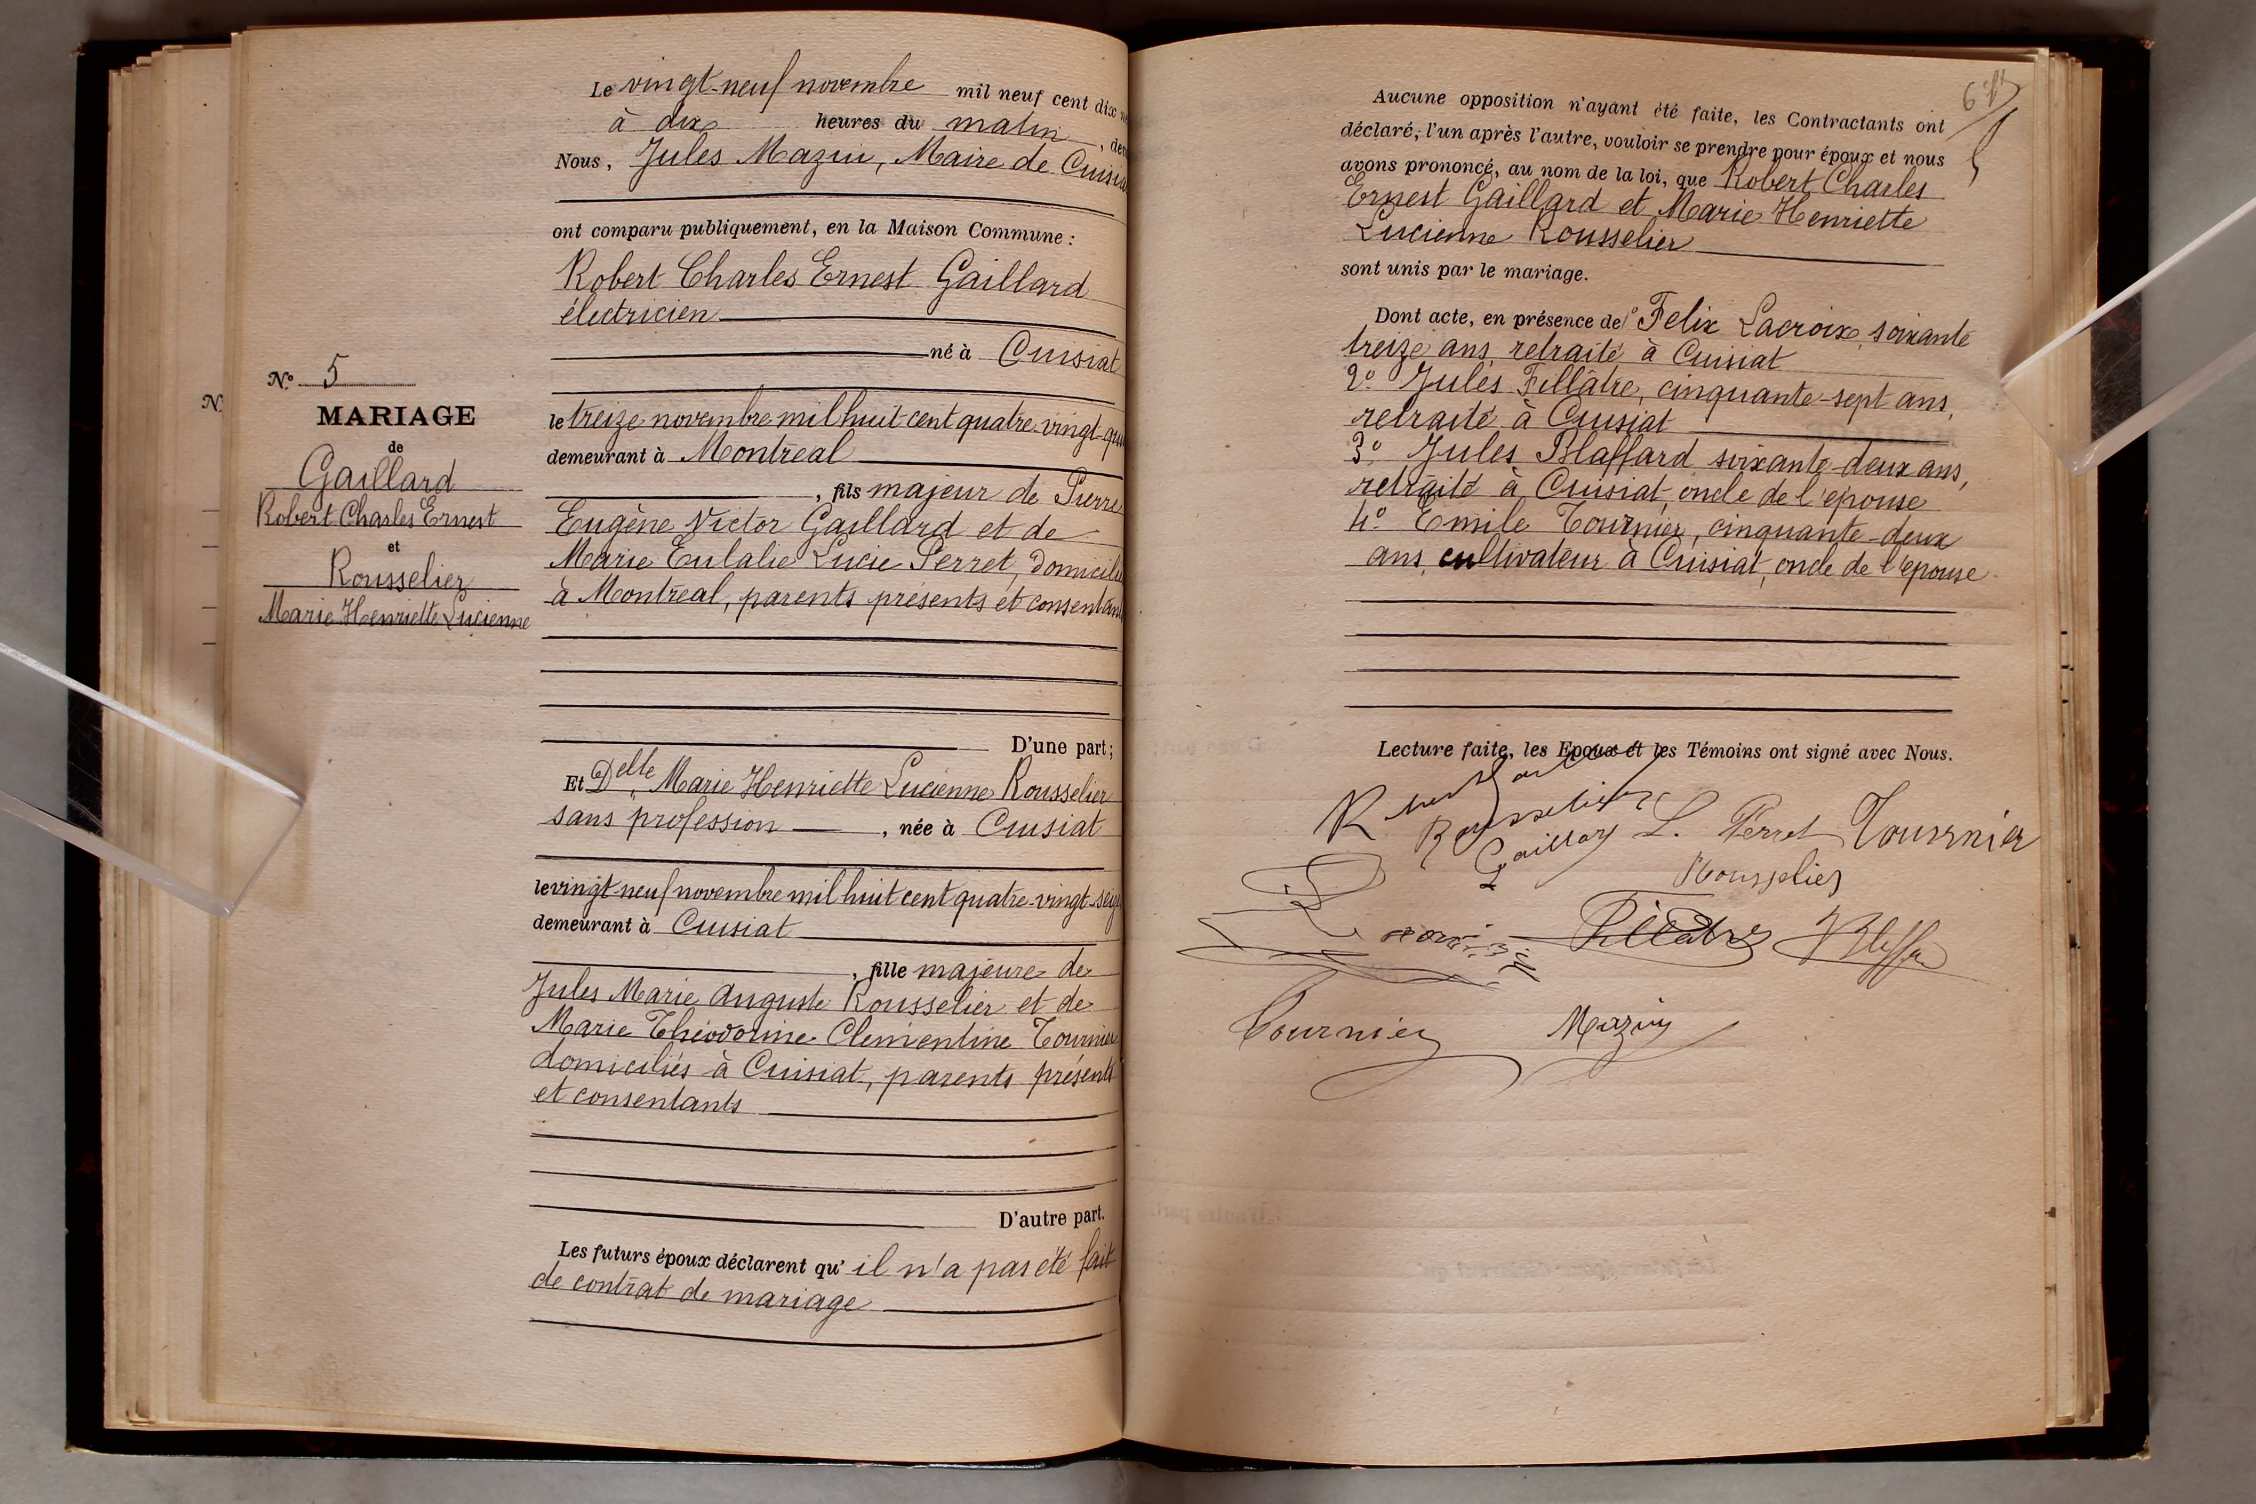 Le vingt-neuf novembre mil neuf cent dix
à dix heures du matin,
Nous, Jules Mazuy, Maire de Cuisiat
ont comparu publiquement, en la Maison Commune :
Robert Charles Ernest Gaillard
électricien
né à Cuisiat
le treize novembre mil huit cent quatre-vingt-
demeurant à Montréal
, fils majeur de Pierre
Eugène Victor Gaillard et de
Marie Eulalie Lucie Perret, domiciliés
à Montréal, parents présents et consentants
D'une part ;
Et Delle Marie Henriette Lucienne Rousselier
sans profession, née à Cuisiat
le vingt-neuf novembre mil huit cent quatre-vingt-seize
demeurant à Cuisiat
, fille majeure de
Jules Marie Auguste Rousselier et de
Marie Théodorine Clémentine Tournier
domiciliés à Cuisiat, parents présents
et consentants
D'autre part.
Les futurs époux déclarent qu'il n'a pas été fait
de contrat de mariage
N.
N° 5
MARIAGE
de
Gaillard
Robert Charles Ernest
et
Rousselier
Marie Henriette Lucienne
Aucune opposition n'ayant été faite, les Contractants ont
déclaré, l'un après l'autre, vouloir se prendre pour époux et nous
avons prononcé, au nom de la loi, que Robert Charles
Ernest Gaillard et Marie Henriette
Lucienne Rousselier
sont unis par le mariage.
Dont acte, en présence de 1° Felix Lacroix, soixante
treize ans, retraité à Cuisiat
2° Jules Fillâtre, cinquante-sept ans,
retraité à Cuisiat
3° Jules Blaffard, soixante-deux ans,
retraité à Cuisiat, oncle de l'épouse
4° Emile Tournier, cinquante-deux
ans, cultivateur à Cuisiat, oncle de l'épouse
Lecture faite, les Epoux et les Témoins ont signé avec Nous.
Rousselier
Gaillard L. Perret Tournier
Rousselier
Fillâtre
Tournier Mazuy